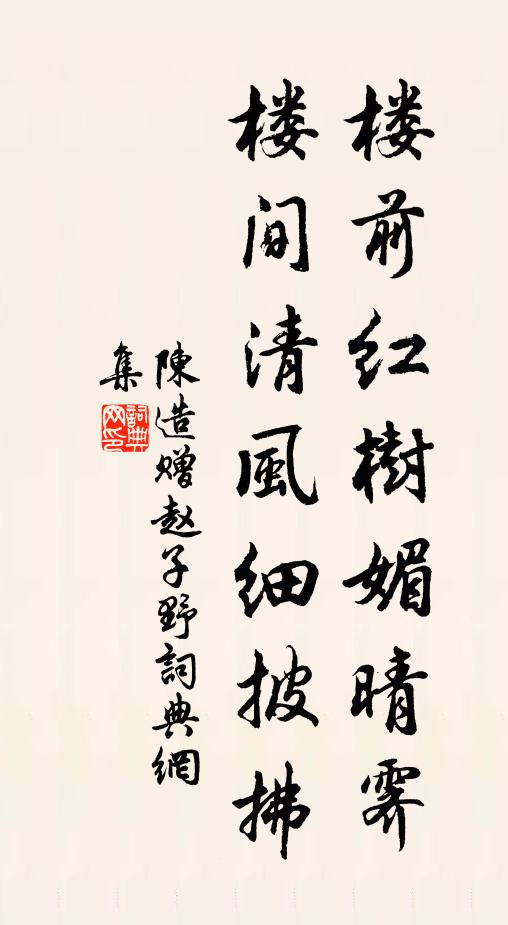 楼前红樹媚晴霁
楼间清風细披拂
陳造赠赵子野詞典網
集
詞典网印